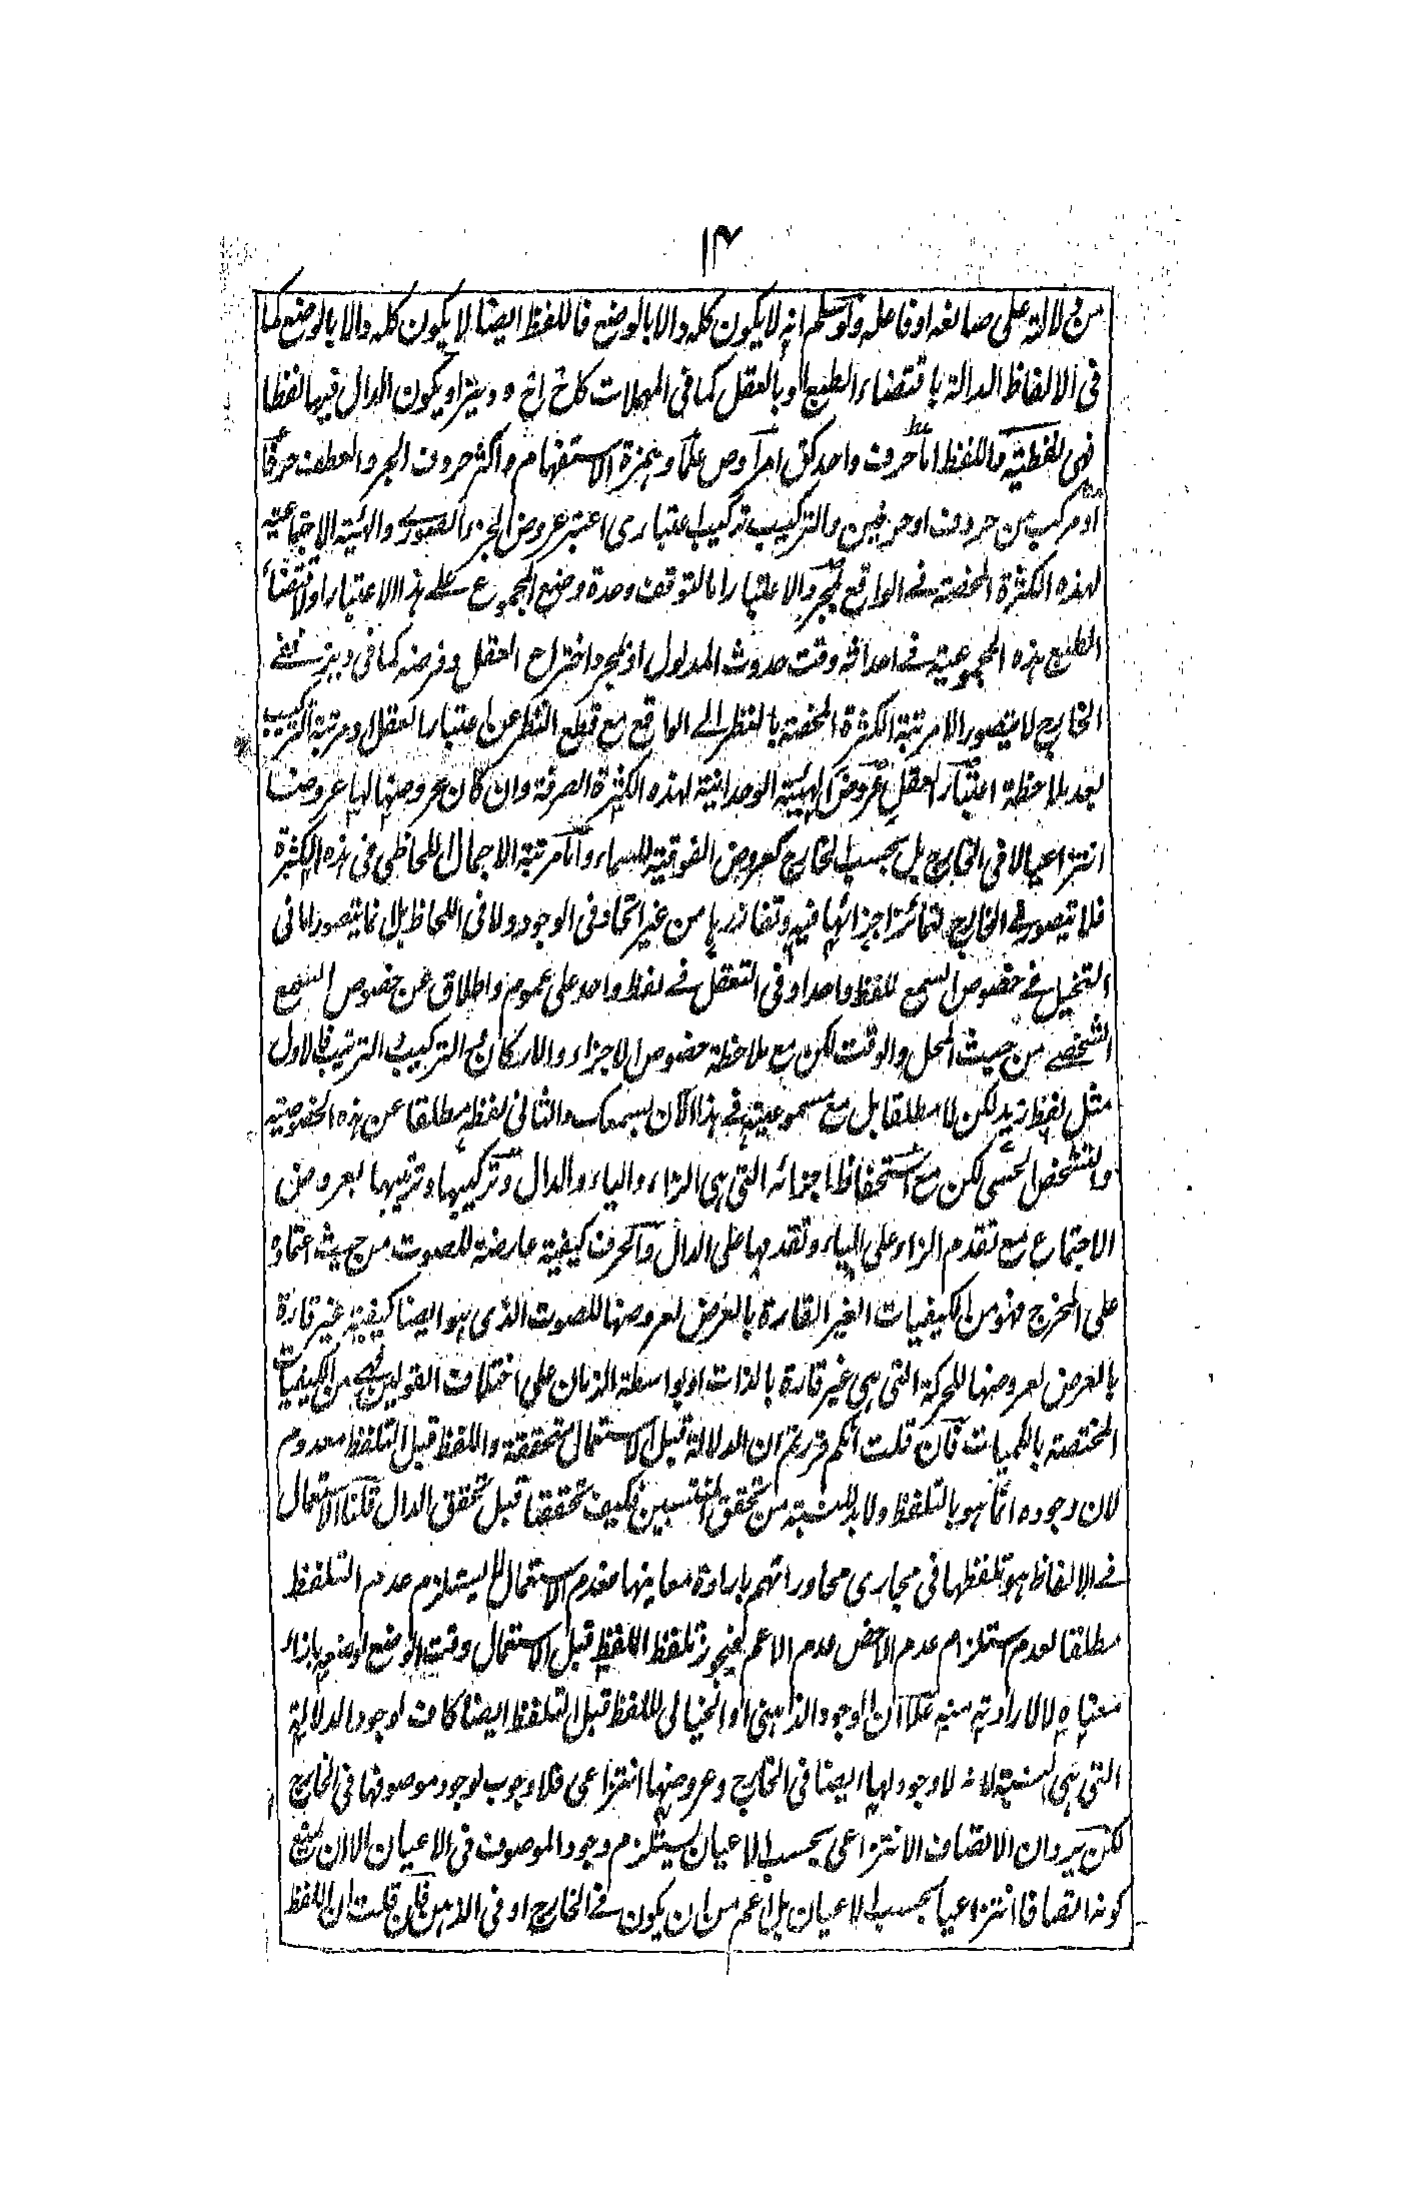 ١٤
من دلالته على صانعه او فاعله ولو سلم انه لا يكون كله دالا بالوضع فاللفظ ايضا لا يكون كله دالا بالوضع كما
فى الالفاظ الدالة باقتضاء الطبع او بالعقل كما فى المهملات كاح اخ ه و ديز او يكون الدال فيها لفظا
فهى لفظية واللفظ اما حرف واحد كق امرا وص علما وهمزة الاستفهام واكثر حروف الجر والعطف حرفا
او مركب من حروف او حرفين والتركيب تركيب اعتبارى اعتبر عروض الجزء الصورى والهيئة الاجتماعية
لهذه الكثرة المحضة فى الواقع لمجرد الاعتبار اما لتوقف وحدة وضع المجموع على هذا الاعتبار او لاقتضاء
الطبع هذه المجموعية فى احداثه وقت حدوث المدلول او لمجرد اختراع العقل وفرضه كما فى ديز ففى
الخارج لا يتصور الا مرتبة الكثرة المحضة بالنظر الى الواقع مع قطع النظر عن اعتبار العقل ومرتبة التركيب
بعد ملاحظة اعتبار العقل عروض الهيئة الوحدانية لهذه الكثرة الصرفة وان كان عروضها لها عروضا
انتزاعيا لا فى الخارج بل بحسب الخارج كعروض الفوقية للسماء واما مرتبة الاجمال اللحاظى فى هذه الكثرة
فلا تتصور فى الخارج لتمائز اجزائها فيه وتغائرها من غير اتحاد فى الوجود ولا فى اللحاظ بل انما يتصور اما فى
التخيل فى خصوص السمع للفظ واحد او فى التعقل فى لفظ واحد على عموم واطلاق عن خصوص السمع
الشخصى من حيث المحل والوقت لكن مع ملاحظة خصوص الاجزاء والاركان مع التركيب والترتيب فالاول
مثل لفظ زيد لكن لا مطلقا بل مع مسموعيته فى هذا الآن بسمعك والثانى لفظه مطلقا عن هذه الخصوصية
والتشخص الحسى لكن مع استحفاظ اجزائه التى هى الزاء والياء والدال وتركيبها وترتيبها بعروض
الاجتماع مع تقدم الزاء على الياء وتقدمها على الدال والحرف كيفية عارضة للصوت من حيث اعتماده
على المخرج فهو من الكيفيات الغير القارة بالعرض لعروضها للصوت الذى هو ايضا كيفية غير قارة
بالعرض لعروضها للحركة التى هى غير قارة بالذات او بواسطة الزمان على اختلاف القولين فهى من الكيفيات
المختصة بالكميات فان قلت انكم قررتم ان الدلالة قبل الاستعمال متحققة واللفظ قبل التلفظ معدوم
لان وجوده انما هو بالتلفظ ولا بد للنسبة من تحقق المنتسبين فكيف تحققها قبل تحقق الدال قلنا الاستعمال
فى الالفاظ هو تلفظها فى مجارى محاوراتهم بارادة معانيها فعدم الاستعمال لا يستلزم عدم التلفظ
مطلقا لعدم استلزام عدم الاخص عدم الاعم فيجوز تلفظ اللفظ قبل الاستعمال وقت الوضع لوضعه بازاء
معناه لا لارادته منه علا ان الوجود الذهنى او الخيالى للفظ قبل التلفظ ايضا كاف لوجود الدلالة
التى هى نسبة لانه لا وجود لها ايضا فى الخارج وعروضها انتزاعى فلا وجوب لوجود موصوفها فى الخارج
لكن يرد ان الاتصاف الانتزاعى بحسب الاعيان يستلزم وجود الموصوف فى الاعيان الا ان يمنع
كونه اتصافا انتزاعيا بحسب الاعيان بل اعم من ان يكون فى الخارج او فى الذهن فان قلت ان اللفظ